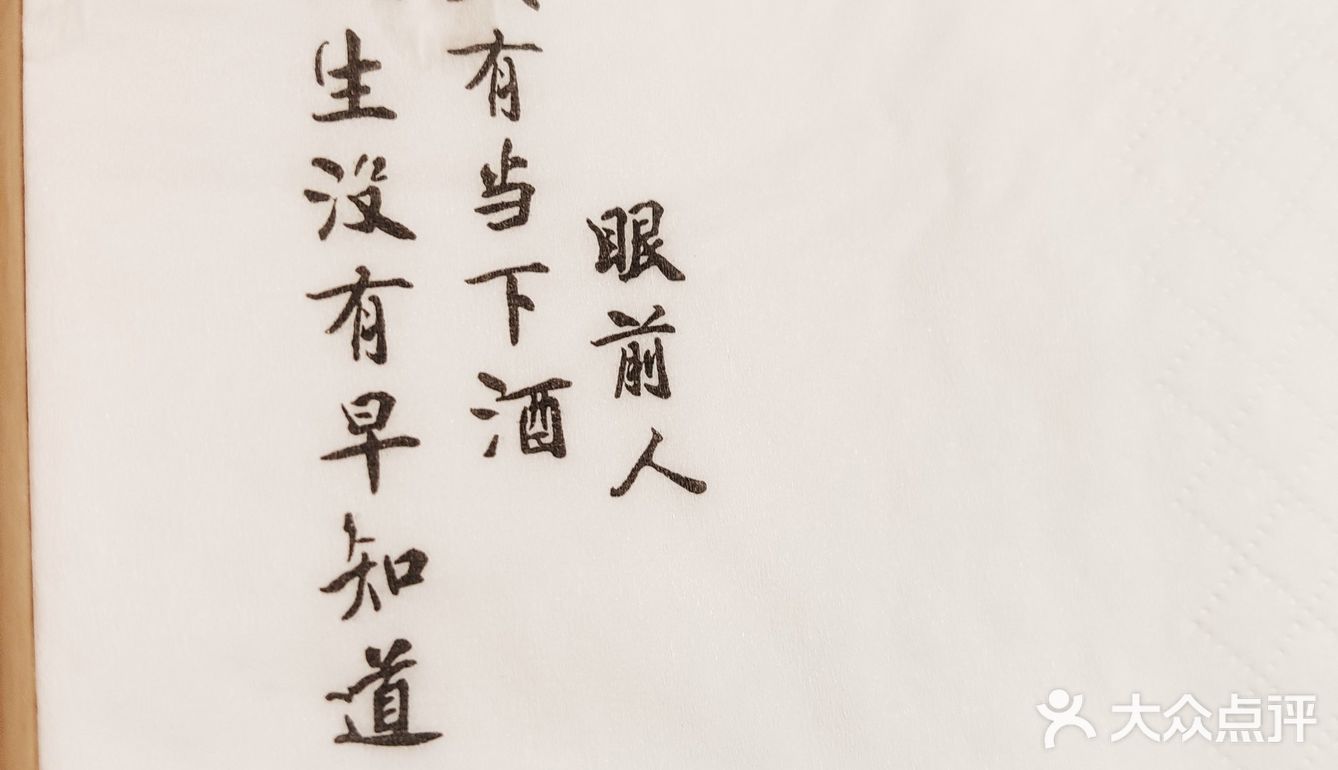 生没有早知道
有当下酒
眼前人
大众点评